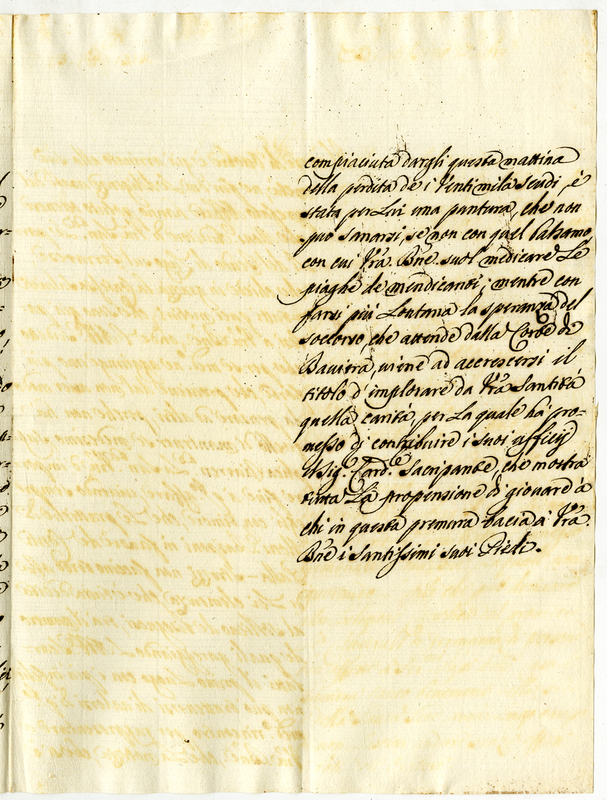 compiaciuta dargli questa mattina
della perdita de i Ventimila scudi, è
stata per Lui una puntura, che non
può sanarsi, se non con quel balsamo,
con cui Vr̃a. Bñe. suol medicare Le
piaghe de mendicanti; mentre con
farsi più Lontana la speranza del
soccorso, che attende dalla Corte di
Baviera, viene ad accrescersi il
titolo d'implorare da Vr̃a Santità
quella carità, per La quale hà pro-
messo di contribuire i suoi officij
il Sig. Card.e Sacripante, che mostra
tutta La propensione di giovare à
chi in questa premura bacia à Vr̃a.
Bñe i Santissimi suoi Piedi.